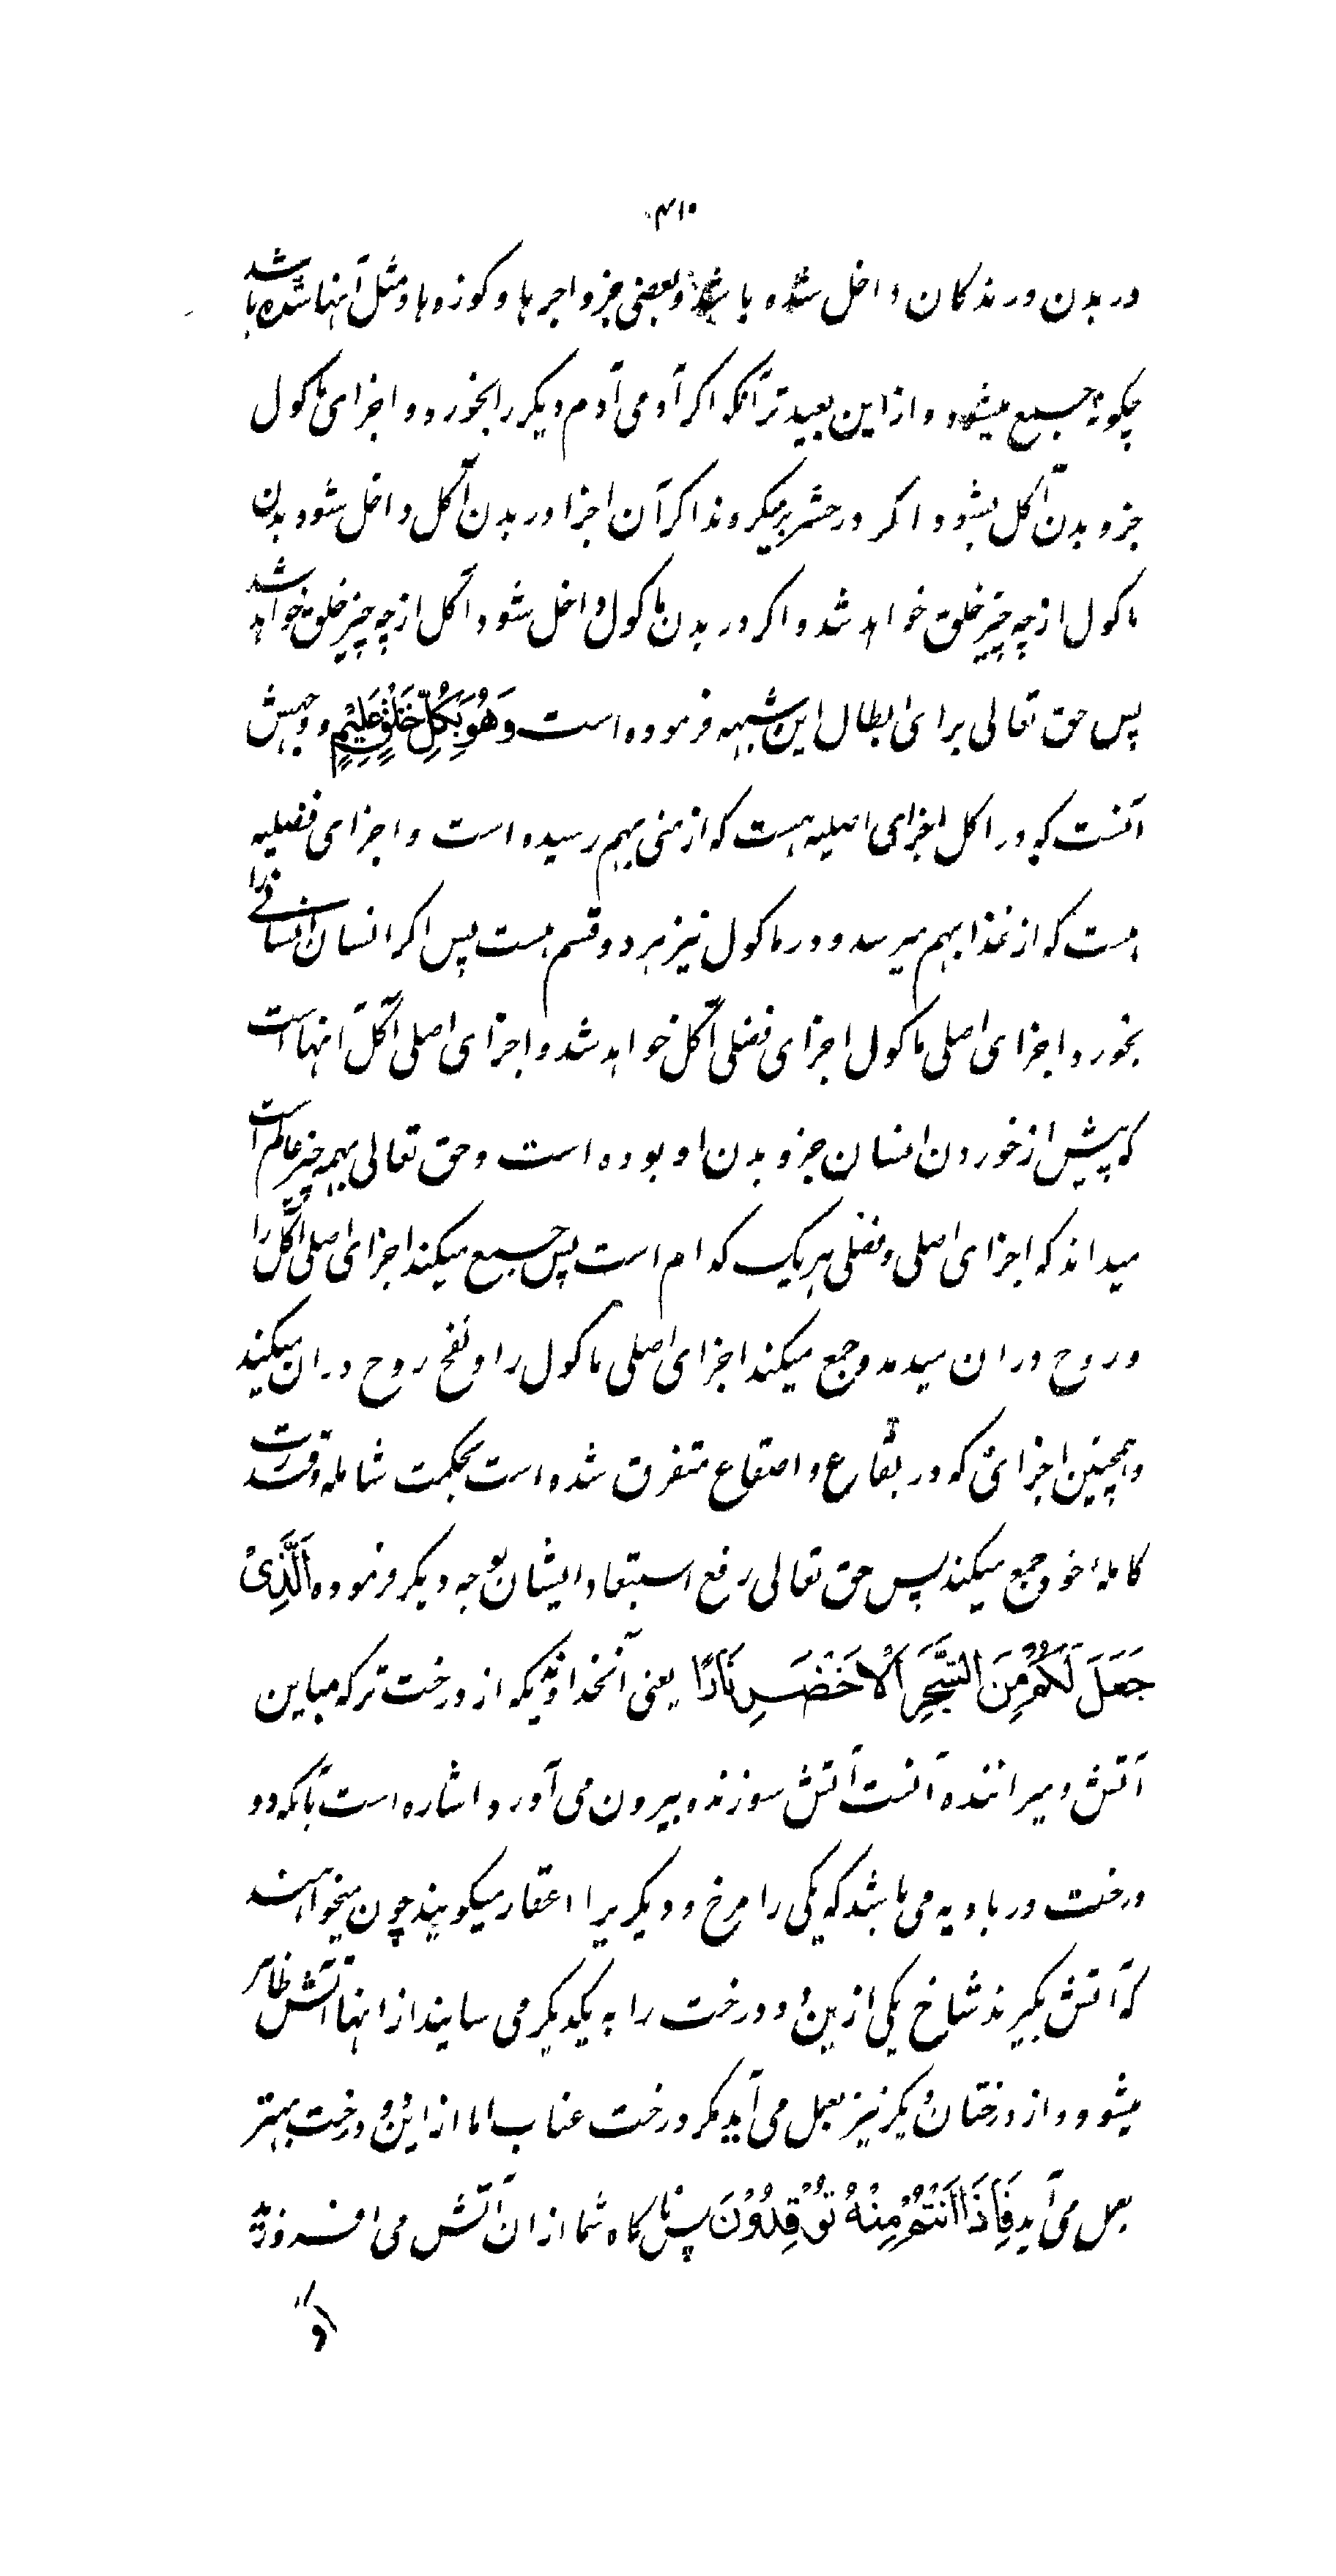 ۴۱۰
در بدن درندکان داخل شده باشد وبعضی جزو اجرها و کوزه‌ها ومثل آنها شده باشد
چکونه جمیع میشود و از این بعید تر آنکه اکر آدمی آدم دیکر را بخورد و اجزای ماکول
جزو بدن آکل بشود اکر در حشر برمیکردند اکر آن اجزا در بدن آکل داخل شود بدن
ماکول از چه چیز خلق خواهد شد و اکر در بدن ماکول داخل شود آکل از چه چیز خلق خواهد شد
پس حق تعالی برای ابطال این شبهه فرموده است وَهُوَ بِکُلِّ خَلْقٍ عَلِیْمٍ و وجهش
آنست که در اکل اجزای اصلیه هست که از منی بهم رسیده است و اجزای فضلیه
هست که از غذا بهم میرسد و در ماکول نیز هر دو قسم هست پس اکر انسان انسانی را
بخورد اجزای اصلی ماکول اجزای فضلی آکل خواهد شد و اجزای اصلی آکل انها است
که پیش از خوردن انسان جزو بدن او بوده است و حق تعالی بهمه چیز عالم است
میداند که اجزای اصلی و فضلی هریک کدام است پس جمیع میکند اجزای اصلی آکل را
و روح در ان میدمد و جمع میکند اجزای اصلی ماکول را و نفخ روح در ان میکند
و همچنین اجزائی که در بقاع و اصقاع متفرق شده است بحکمت شامله و قدرت
کامله خود جمع میکند پس حق تعالی رفع استبعاد ایشان بوجه دیکر فرموده اَلَّذِیْ
جَعَلَ لَکُمْ مِنَ الشَّجَرِ الْاَخْضَرِ نَارًا یعنی آنخداوندیکه از درخت تر که مباین
آتش و میراننده آنست آتش سوزنده بیرون می آورد و اشاره است بآنکه دو
درخت در بادیه می باشد که یکی را مرخ و دیکریرا اعقار میکویند چون میخواهند
که آتش بکیرند شاخ یکی ازین دو درخت را به یکدیکر می سایند از انها آتش ظاهر
میشود و از درختان دیکر نیز بعمل می آید مکر درخت عناب اما از این دو درخت بهتر
بعمل می آید فَاِذَا اَنْتُمْ مِنْهُ تُوْقِدُوْنَ پس ناکاه شما از ان آتش می افروزید